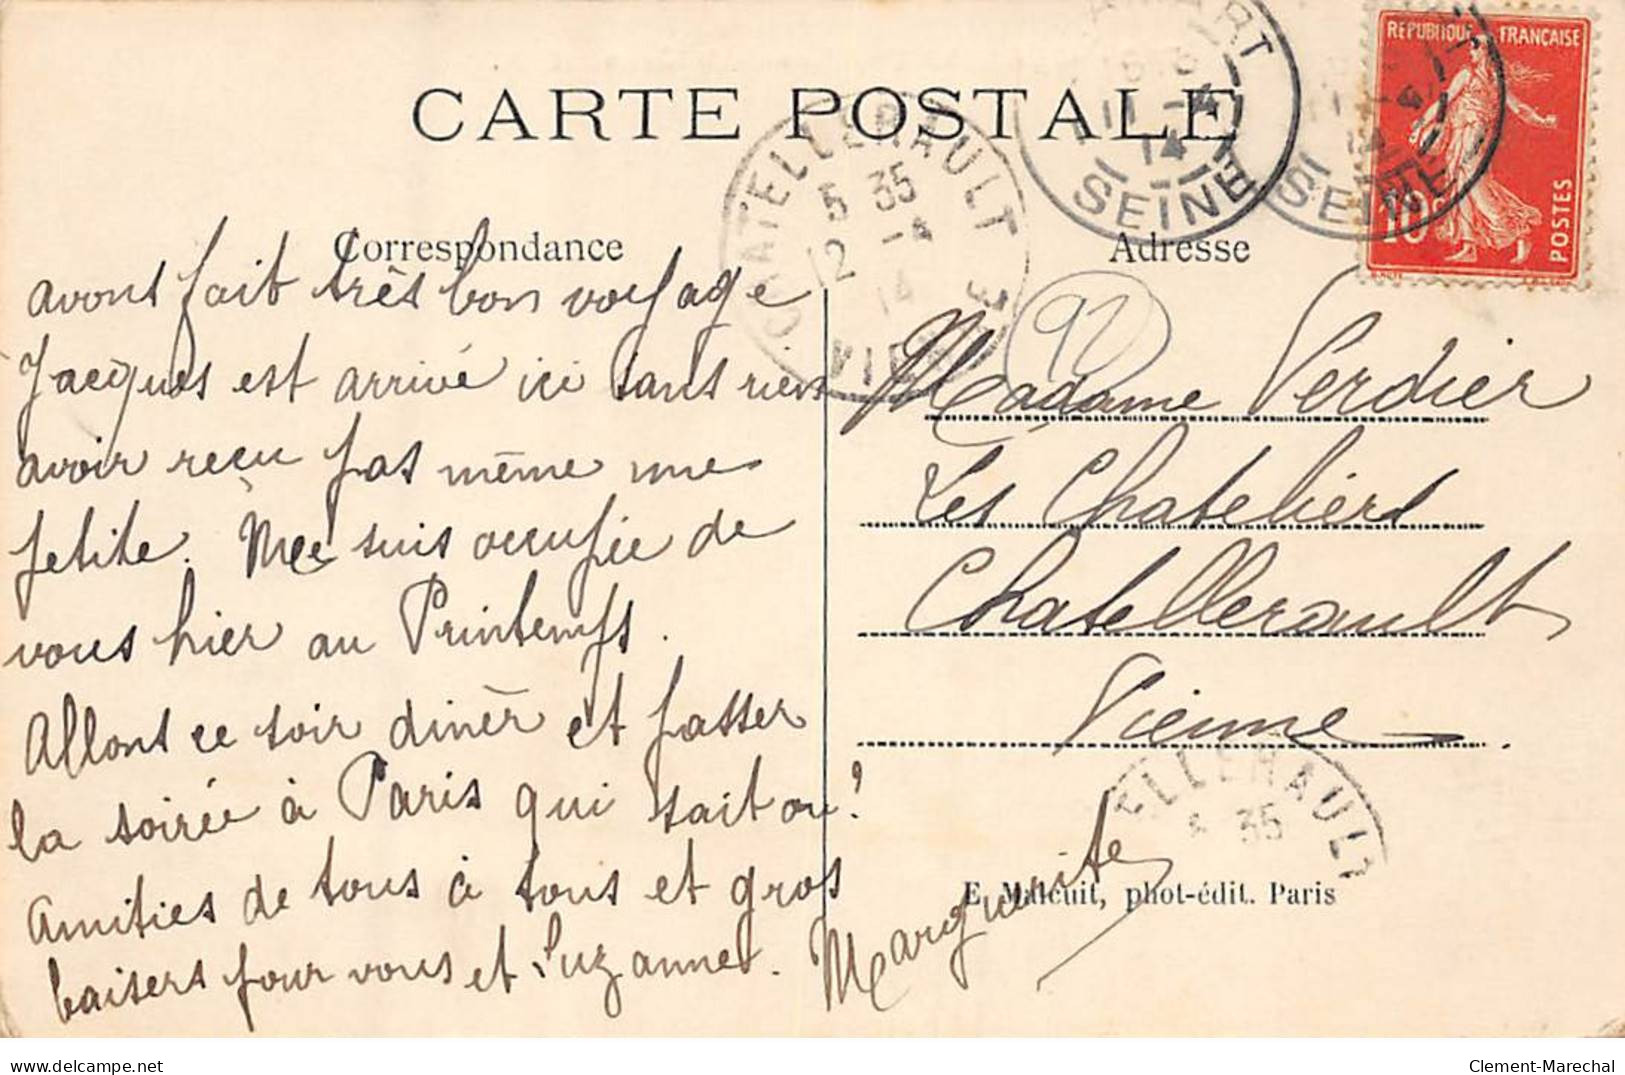 CARTE POSTALE
RÉPUBLIQUE FRANÇAISE
10c
POSTES
SEINE
11 -4
14
SEINE
CHATELLERAULT
5 35
12 -4
14
VIENNE
Correspondance
avons fait très bon voyage
Jacques est arrivé ici sans rien
avoir reçu pas même une
petite. Me suis occupée de
vous hier au Printemps.
Allons ce soir diner et passer
la soirée à Paris qui sait ou?
Amitiés de tous à tous et gros
baisers pour vous et Suzanne.
Marguerite
Adresse
92
Madame Verdier
Les Chateliers
Chatellerault
Vienne.
ELLERAULT
35
E. Malcuit, phot-édit. Paris
delcampe.net
Clement-Marechal